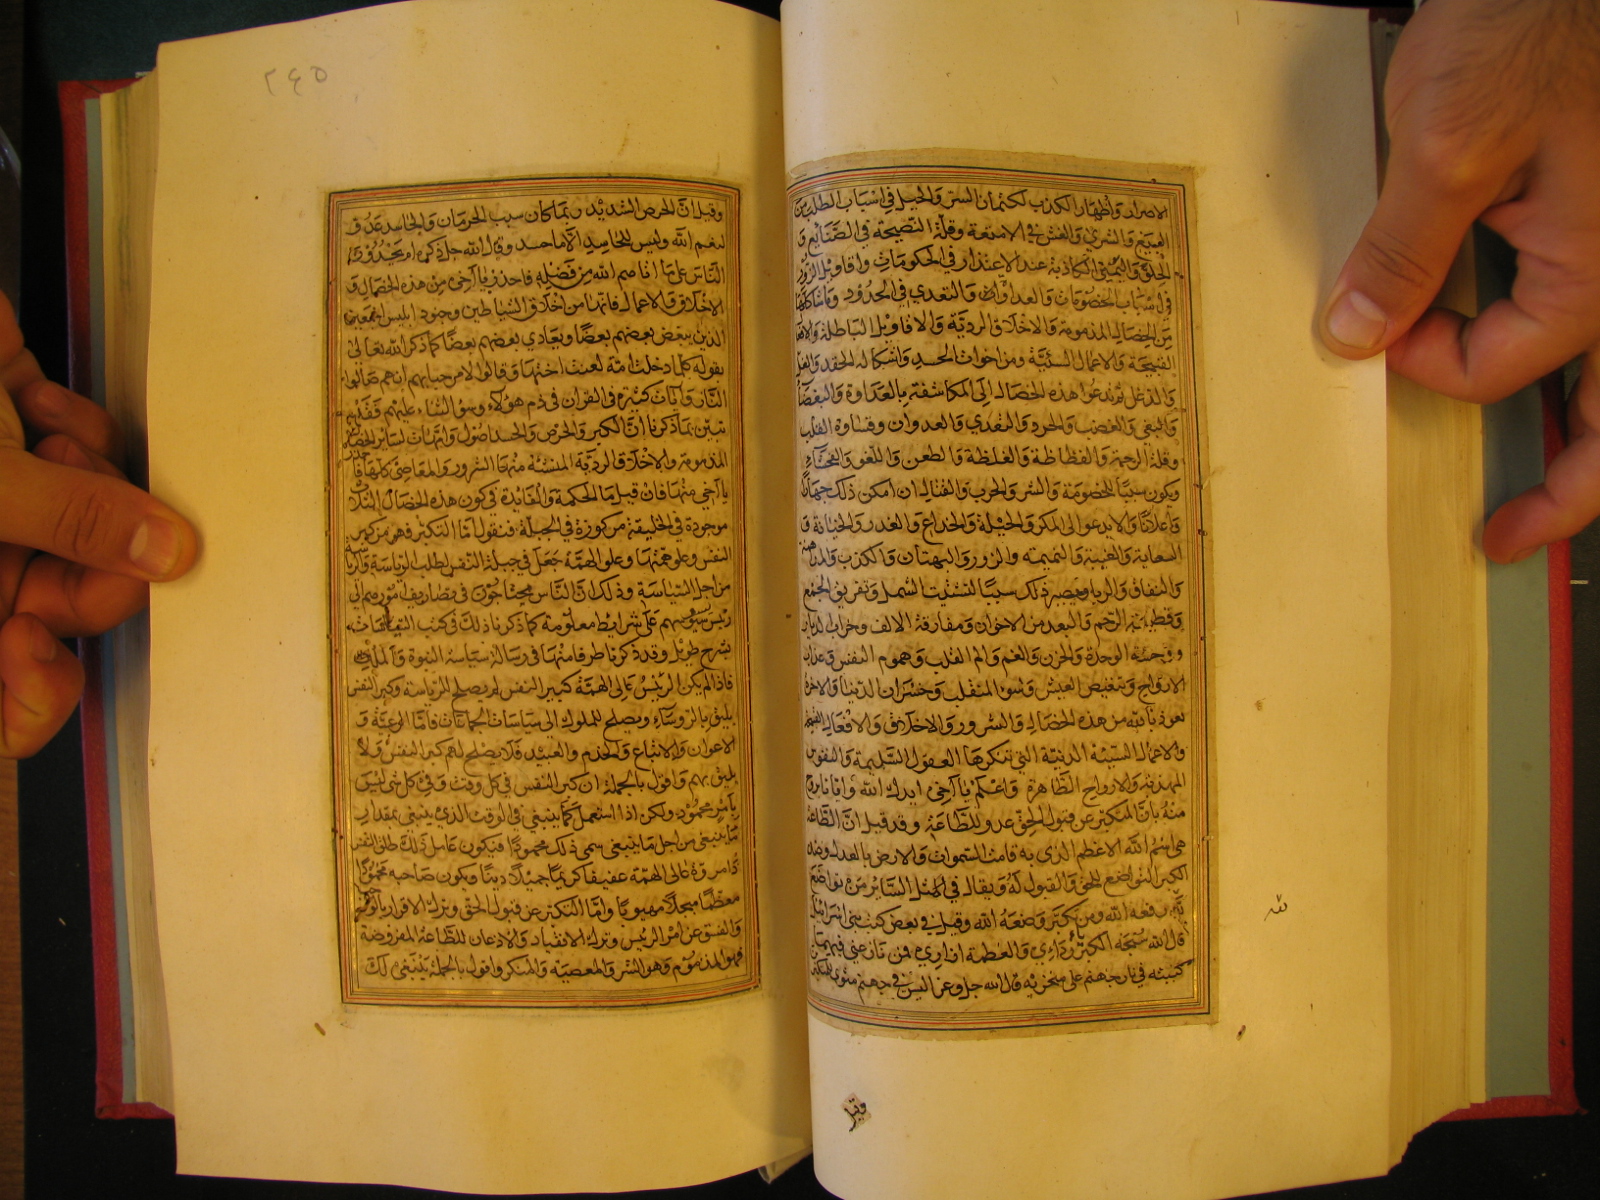 الاصرار واظهار الكذب لكتمان الستر والحيل في اسباب الطلب من
المبيع والشرى والغش في الامتعة وقلة النصيحة في الصنايع و
الحلف واليمين الكاذبة عند الاعتذار في الحكومات واقاويل الزور
في اسباب الخصومات والعداوات والتعدي في الحدود وما شاكلها
من الخصال المذمومة والاخلاق الردية والاقاويل الباطلة والافعال
القبيحة والاعمال السيئة ومن اخوات الحسد واشكاله الحقد والغل
والدغل ثم يدعوا هذه الخصال الى المكاشفة بالعداوة والبغضا
والبغى والغضب والحرد والتعدي والعدوان وقساوة القلب
وقلة الرحمة والفظاظة والغلظة والطعن واللغو والفحشاء
ويكون سببا للخصومة والشر والحرب والقتال ان امكن ذلك جهارا
واعلانا والا يدعوا الى المكر والحيلة والخداع والغدر والخيانة و
السعاية والغيبة والنميمة والزور والبهتان والكذب والمداهنة
والنفاق والريا ويصير ذلك سببا لتشتيت الشمل وتفريق الجمع
وقطيعة الرحم والبعد من الاخوان ومفارقة الالف وخراب الديار
ووحشة الوحدة والحزن والغم والم القلب وهموم النفس وعذاب
الارواح وتنغيص العيش وسوء المنقلب وخسران الدنيا والاخرة
نعوذ بالله من هذه الخصال والشرور والاخلاق والافعال القبيحة
والاعمال السيئة الدنية التي تنكرها العقول السليمة والنفوس
المهذبة والارواح الطاهرة واعلم يا اخي ايدك الله وايانا بروح
منه بان المتكبر عن قبول الحق عدو للطاعة وقد قيل ان الطاعة
هي اسم الله الاعظم الذي به قامت السموات والارض بالعدل وضد
الكبر التواضع للحق والقبول له ويقال في المثل السائر من تواضع
لله رفعه الله ومن تكبر وضعه الله وقيل في بعض كتب بني اسرائيل
قال الله سبحه الكبرياء ردائي والعظمة ازاري فمن نازعني فيهما
كببته في نار جهنم على منخريه قال الله جل وعز اليس في جهنم مثوى للمتكبرين
لله
وقيل
٢٤٥
وقيل ان الحرص الشديد ربما كان سبب الحرمان والحاسد عدو
لنعم الله وليس للحاسد الا ما حسد وقال الله جل ذكره ام يحسدون
الناس على ما اتاهم الله من فضله فاحذر يا اخي من هذه الخصال و
الاخلاق والاعمال فانها من اخلاق الشياطين وجنود ابليس اجمعين
الذين يبغض بعضهم بعضا ويعادي بعضهم بعضا كما ذكر الله تعالى
بقوله كلما دخلت امة لعنت اختها وقالوا لا مرحبا بهم انهم صالوا
النار وآيات كثيرة في القران في ذم هؤلاء وسوء الثناء عليهم فقد
تبين بما ذكرنا ان الكبر والحرص والحسد اصول وامهات لسائر الخصال
المذمومة والاخلاق الردية المنتشئة منها الشرور والمعاصي كلها فاحذر
يا اخي منها فان قيل ما الحكمة والفائدة في كون هذه الخصال الثلاث
موجودة في الخليقة مركوزة في الجبلة فنقول اما التكبر فهو من كبر
النفس وعلو همتها وعلو الهمة جعل في جبلة النفس لطلب الرياسة والرياسة
من اجل السياسة وذلك ان الناس محتاجون في تصاريف امورهم الى
رئيس يسوسهم على شرايط معلومة كما ذكرنا ذلك في كتب السياسات
بشرح طويل وقد ذكرنا طرفا منها في رسالة سياسة النبوة والملك
فاذا لم يكن الرئيس عالي الهمة كبير النفس لم يصلح للرياسة وكبر النفس
يليق بالرؤساء ويصلح للملوك الى سياسات الجماعات فاما الرعية و
الاعوان والاتباع والخدم والعبيد فلا يصلح لهم كبر النفس ولا
يليق بهم واقول بالجملة ان كبر النفس في كل وقت وفي كل شيء ليس
بامر محمود ولكن اذا استعمل كما ينبغي في الوقت الذي ينبغي بمقدار
ما ينبغي من اجل ما ينبغي سمى ذلك محمودا فيكون عامل ذلك طلق النفس
ذا مروة عالى الهمة عفيفا كريما جميلا دينا ويكون صاحبه محمودا
معظما مبجلا مهيوبا واما التكبر عن قبول الحق وترك الاقرار به
والفسق عن امر الرئيس وترك الانقياد والاذعان للطاعة المفروضة
فهو المذموم وهو الشر والمعصية والمنكر واقول بالجملة ينبغي لك